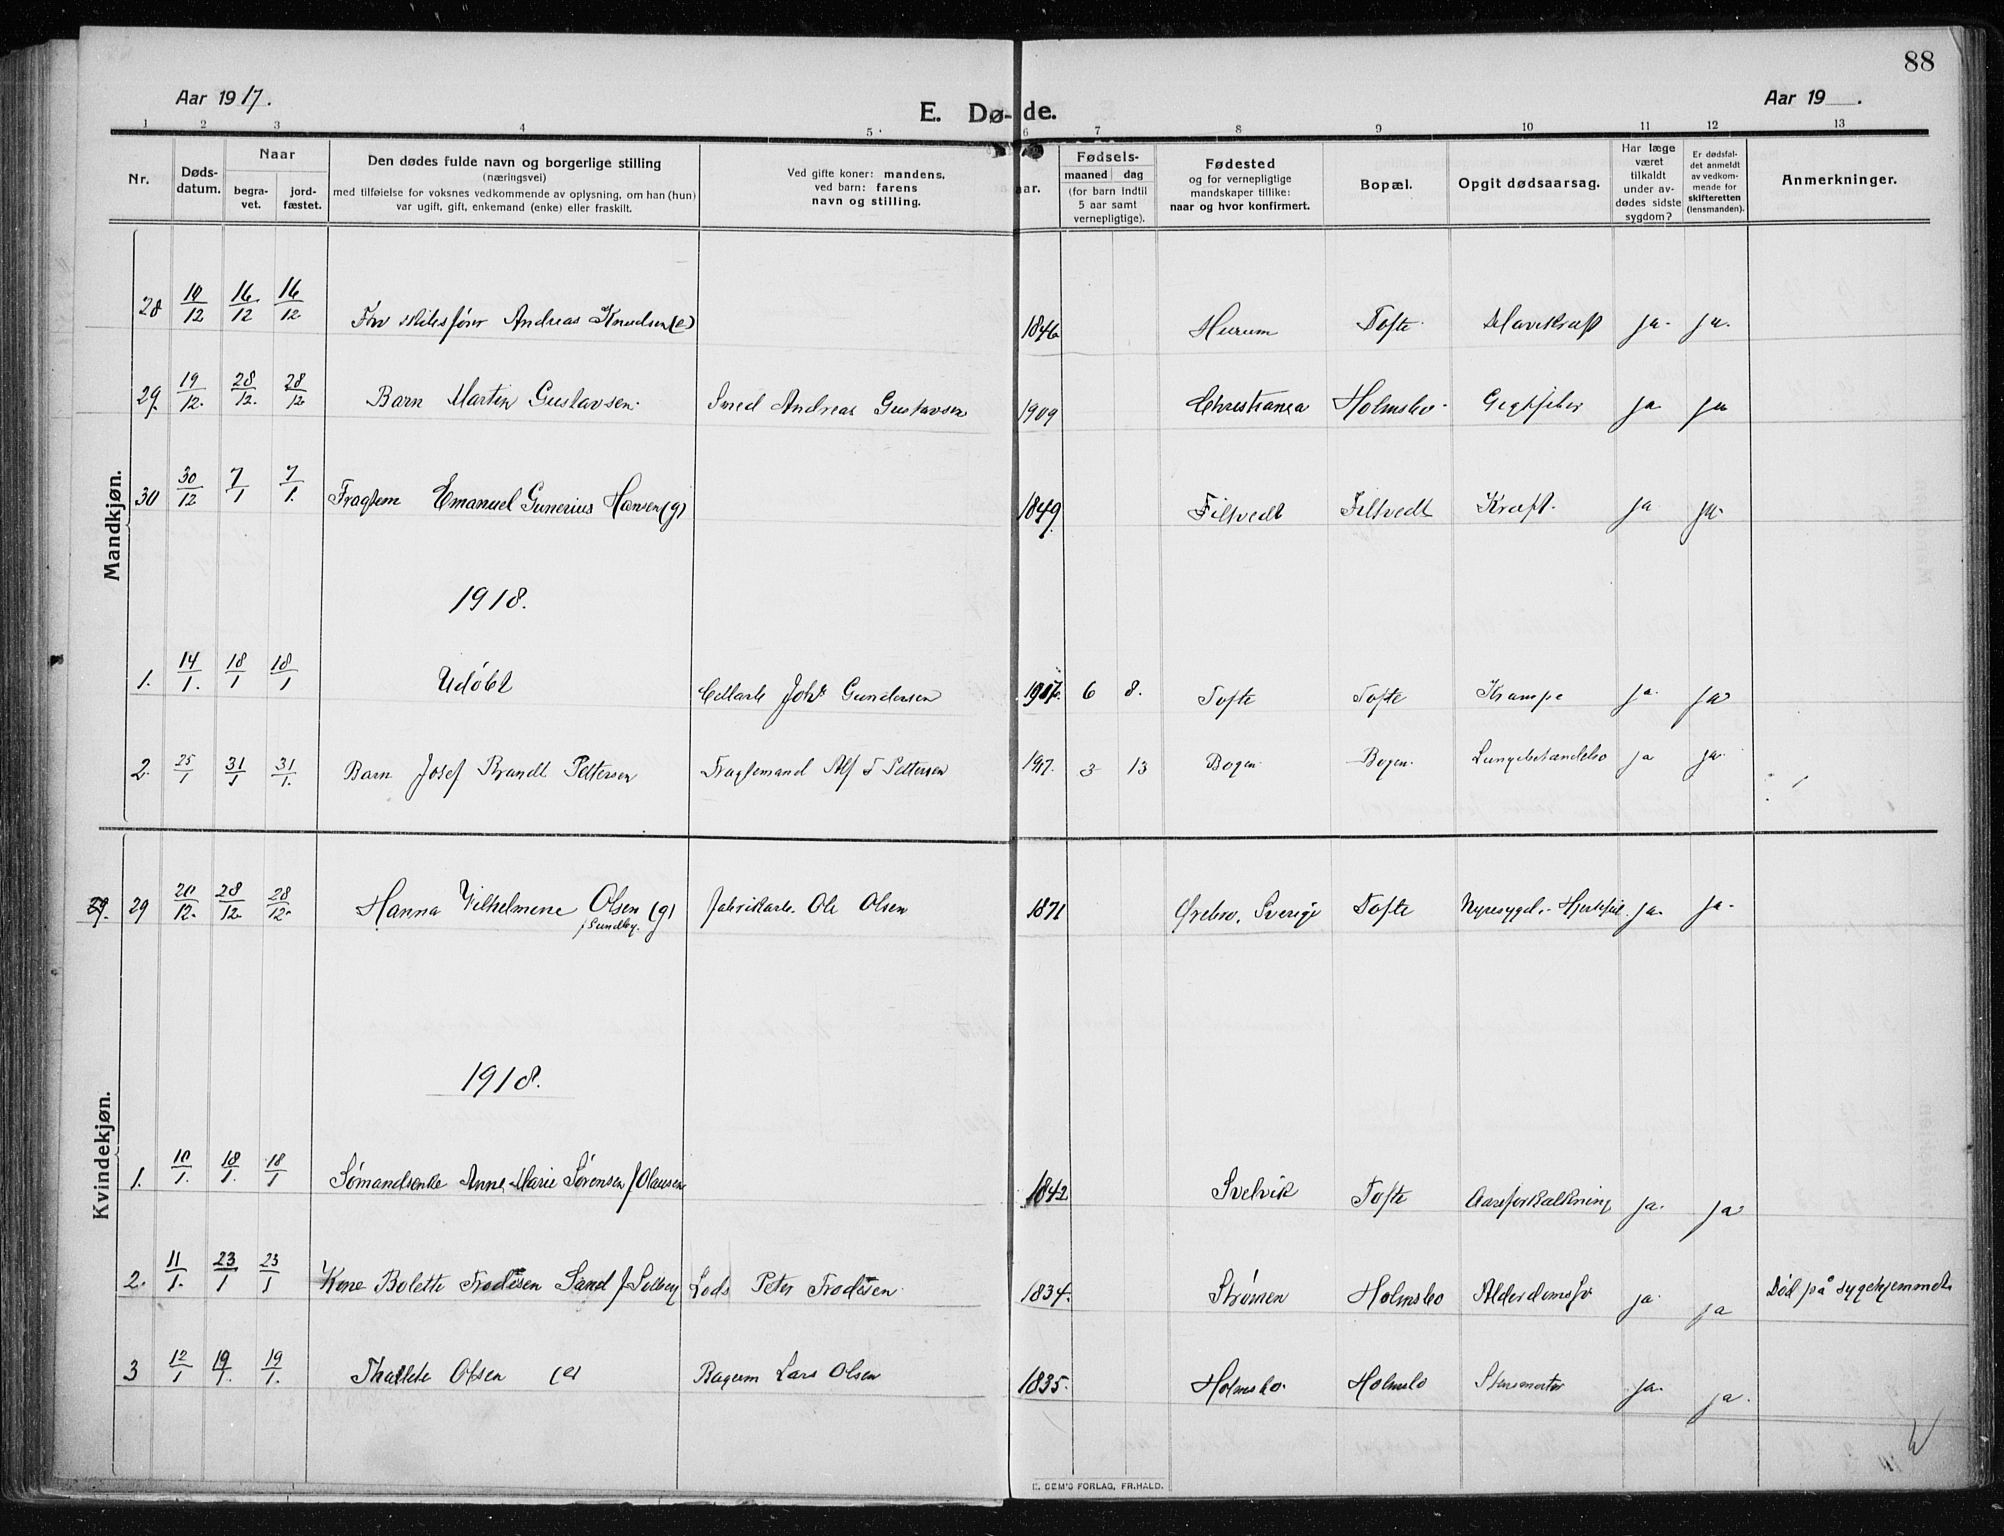 88
Aar 1917.
E. Dø- de.
Aar 19 .
1 2 3 4 5 6 7 8 9 10 11 12 13
Nr.
Døds-
datum.
Naar
begra-
vet.
jord-
fæstet.
Den dødes fulde navn og borgerlige stilling
(næringsvei)
med tilføielse for voksnes vedkommende av oplysning, om han (hun)
var ugift, gift, enkemand (enke) eller fraskilt.
Ved gifte koner: mandens,
ved barn: farens
navn og stilling.
aar.
Fødsels-
maaned dag
(for barn indtil
5 aar samt
vernepligtige).
Fødested
og for vernepligtige
mandskaper tillike:
naar og hvor konfirmert.
Bopæl.
Opgit dødsaarsag.
Har læge
været
tilkaldt
under av-
dødes sidste
sygdom?
Er dødsfal-
det anmeldt
av vedkom-
mende for
skifteretten
(lensmanden).
Anmerkninger.
Mandkjøn.
28 10/12 16/12 16/12 Andreas Knudsen (e) 1846 Hurum Tofte ja. ja.
29. 19/12. 28/12. 28/12 Barn Martin Gustavsen. Smed Andreas Gustavsen 1909 Christiania Holmsbo. Gigtfeber ja ja
30 30/12 7/1 7/1. Fragtem Emanuel Gunerius Hansen (g) 1849. Filtvedt Filtvedt Kræft. ja ja.
1918.
1. 14/1. 18/1 18/1 Udøbt Joh. Gundersen 1917. 6 8. Tofte Tofte Krampe ja. ja
2. 25/1 31/1 31/1. Barn Josef Brandt Pettersen Fragtemand Alf T Pettersen 1917. 3 13 Bogen. Bogen. Lungebetændelse ja ja.
Kvindekjøn.
29. 29 20/12. 28/12. 28/12. Hanna Vilhelmine Olsen (g) Fabrikarb. Ole Olsen 1871 Ørebro, Sverige Tofte Nyresygd. Hjertefeil. ja. ja.
f Sundby.
1918.
1. 10/1. 18/1. 18/1 Sømandsenke Anne Marie Sørensen f Olausen 1842 Svelvik Tofte Aareforkalkning ja. ja
2. 11/1. 23/1 23/1 Kone Bolette Trodesen Sand f Solberg Lods Peter Trodesen. 1834. Strømen Holmsbo Alderdomssv ja. ja Død på sygehjemmet
3 12/1 19/1. 19/1. Thalete Olsen (e) Bagerm Lars Olsen 1835. Holmsbo. Holmsbo ja. ja.
E. SEM'S FORLAG, FR.HALD.